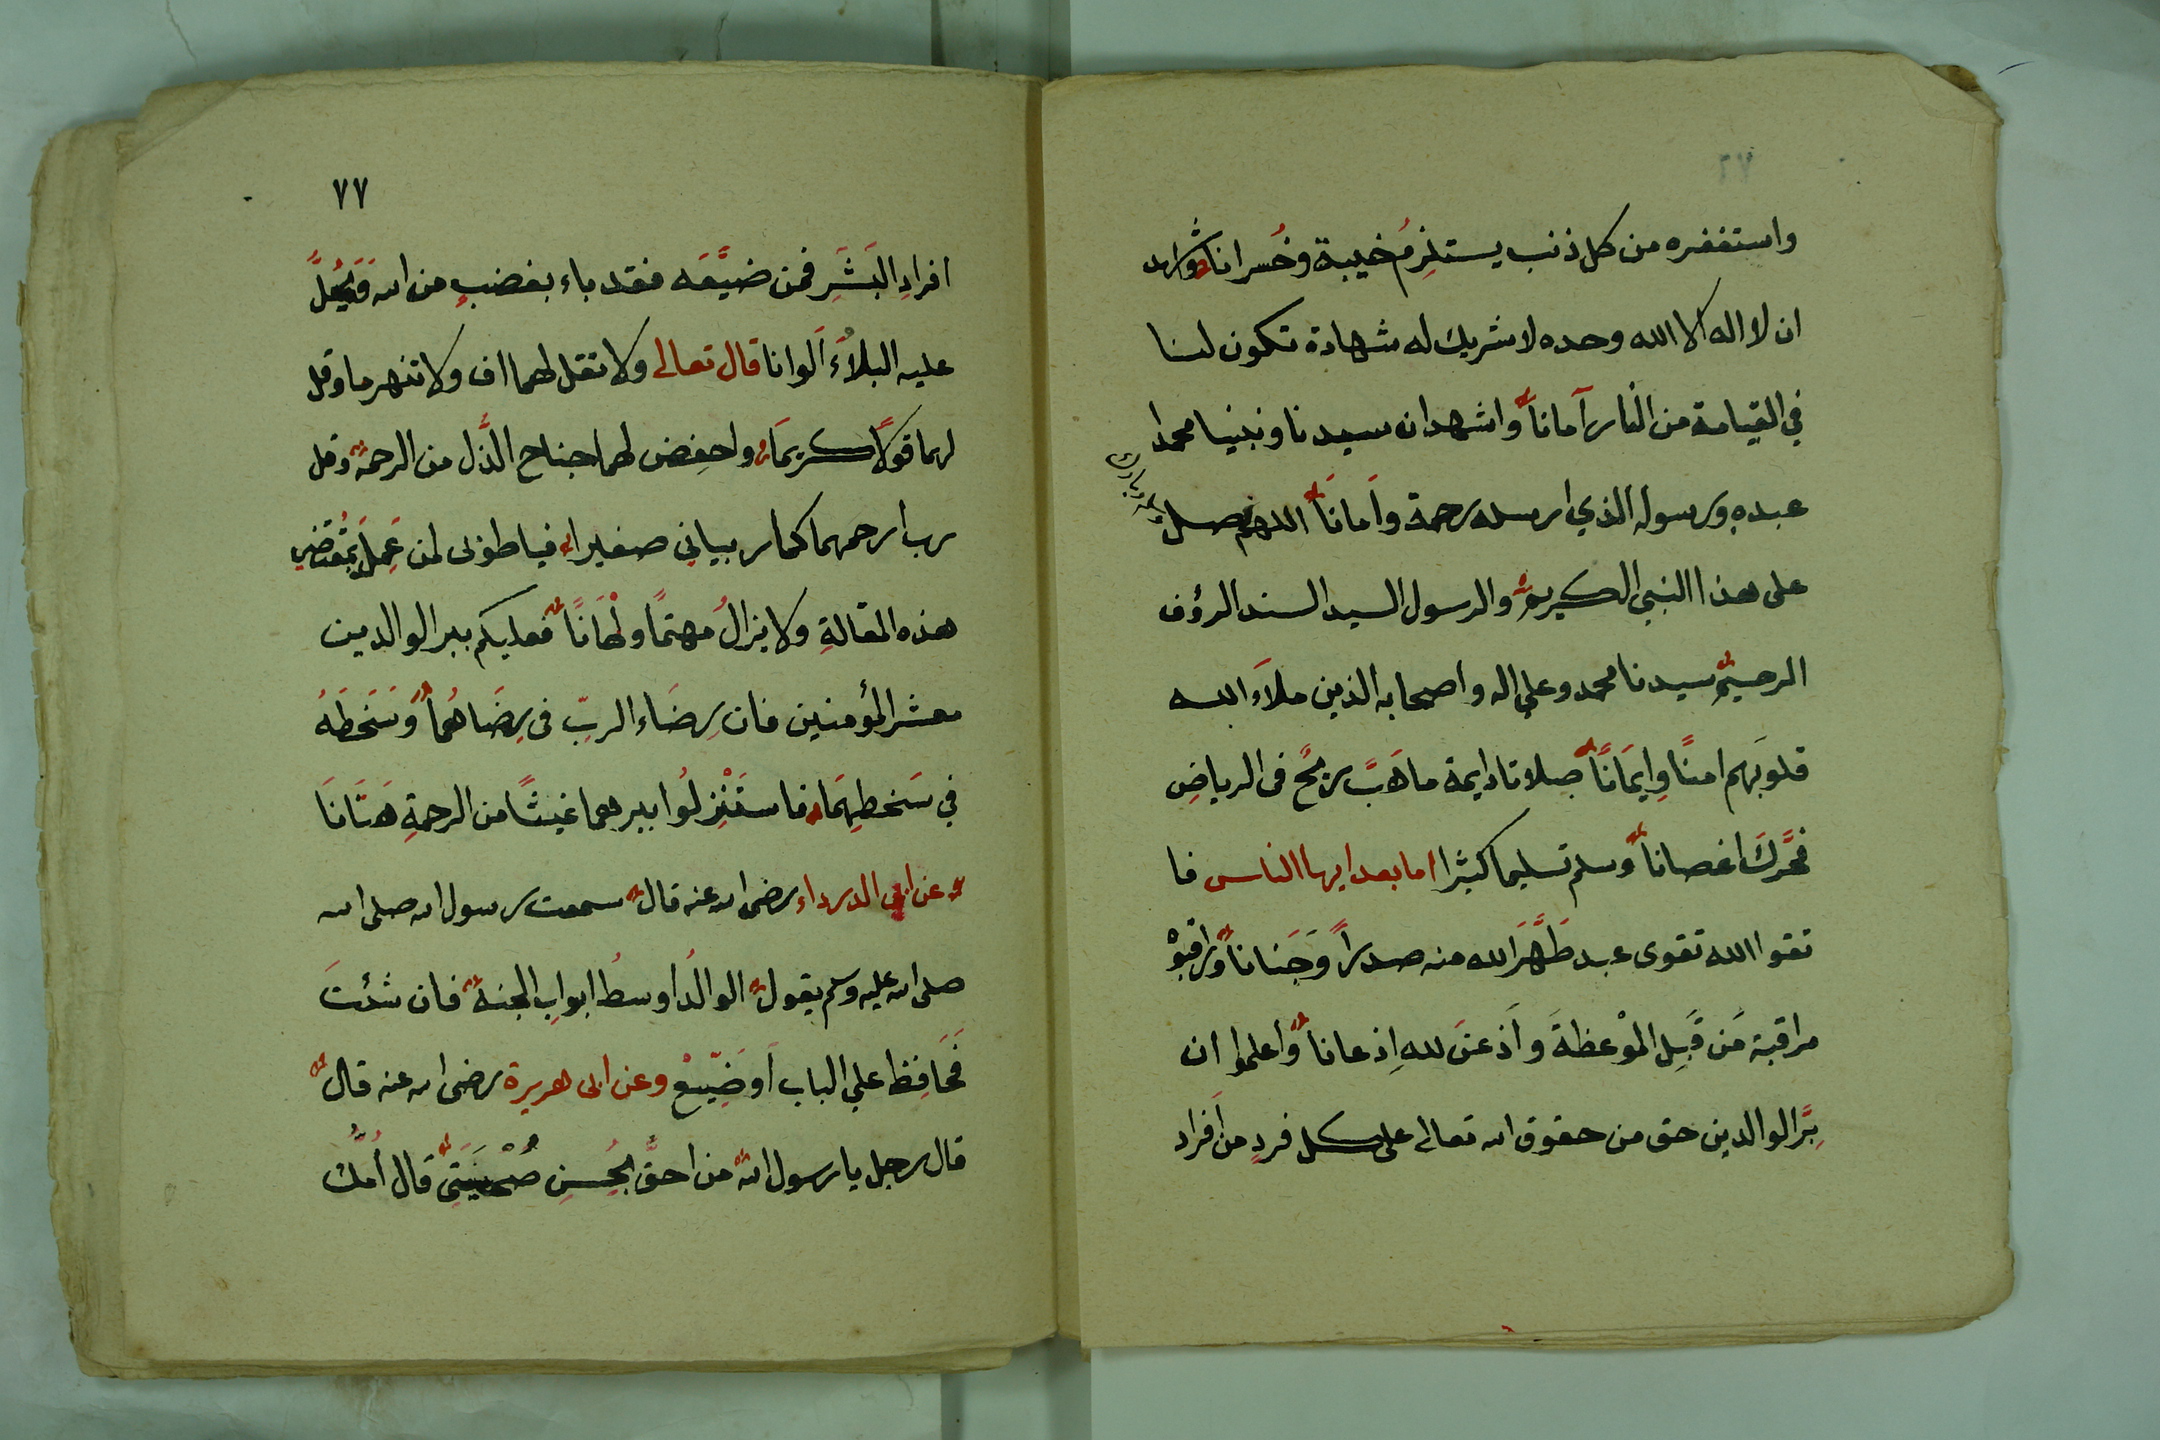 واستغفره من كل ذنب يستلزمُ خيبة وخُسرانا واشهد
ان لا اله الا الله وحده لا شريك له شهادة تكون لنا
في القيامة من النار آماناً واشهد ان سيدنا ونبينا محمدا
عبده ورسوله الذي ارسله رحمة وآماناً اللهم صل وسلم وبارك
على هذا النبي الكريم والرسول السيد السند الرؤف
الرحيم سيدنا محمد وعلي اله واصحابه الذين ملأَ الله
قلوبَهم امنًا وإيمَانًا صلاتا دايمة ما هَبَّ ريحٌ فى الرياضِ
فحَرَّكَ اغصاناً وسلم تسليما كثيرا اما بعد ايها الناس فا
تقوا الله تقوى عبد طَهَّرَ الله منه صدراً وَجَناناً وراقبوْ
مراقبة مَن قَبِل المْوعظةَ وأَذعنَ لله إِذعاناً واعلموا ان
بِرَّ الوالدين حق من حقوق الله تعالى على كل فردٍ من أَفراد
٧٧
افرادِ البَشَرِ فمن ضيَّعَه فقد باء بغضبٍ من الله وَيَحُلُّ
عليه البلاَُءَ اَلوانا قال تعالى ولا تقل لهما اف ولا تنهرهما وقل
لهما قولًا كريمَا واحفض لهما جناح الذُّل من الرحمة وقل
رب ارحمهما كما ربياني صغيرا فيا طوبى لمن عَمِلَ بمُقتَضي
هذه المقالةِ ولا يزالُ مهتمًا ولْهَانًا فعليكم ببر الوالدين
معشر المؤمنين فان رِضَاء الربِّ فى رِضَاهُما وَسَخَطَهُ
في سَخطِهِمَا فاستَنْزِلُوا ببرهما غيثًا من الرحمةِ هَتَّانَا
عن ابي الدرداء رضى الله عنه قال سمعت رسول الله صلى الله
صلى الله عليه وسلم يقول الوالدُ اوسطُ ابوابِ الجنة فان شئتَ
فَحَافِظ علي الباب أَو ضَيِّعْ وعن ابى هريرة رضى الله عنه قال
قال رجل يا رسول الله من احقُّ بحُسنِ صُحْبَتِى قال أُمُّك